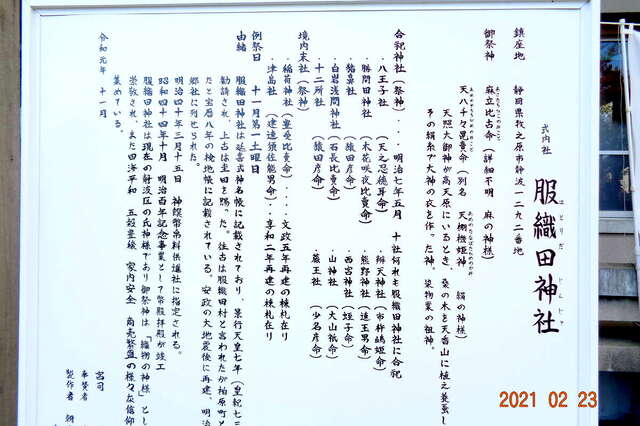 式内社
服織田神社
はとりだじんじゃ
鎮座地　静岡県牧之原市静波一二九二番地
御祭神　麻立比古命（詳細不明　麻の神様）
天八千々毘賣命（別名　天棚機姫神　絹の神様）
天照大御神が高天原にいるとき、桑の木を天香山に植え養蚕し
その絹糸で大神の衣を作った神。染物業の祖神。
合祀神社（祭神）・・・明治七年五月　十社何れも服織田神社に合祀
・八王子社　（天之忍穂耳命）　・辨天神社（市杵嶋姫命）
・勝間田神社　（木花咲夜比賣命）　・熊野神社（速玉男命）
・猪鼻社　（猿田彦命）　・西宮神社（蛭子命）
・白岩浅間神社（石長比賣命）　・山神社　（大山祇命）
・十二所社　（猿田彦命）　・蔵王社　（少名彦命）
境内末社（祭神）
・稲荷神社（豊受比賣命）・・・文政五年再建の棟札在り
・津島社　（建速須佐能男命）・・享和二年再建の棟札在り
例祭日　十一月第一土曜日
由緒　服織田神社は延喜式神名帳に記載されており、景行天皇七年（皇紀七三
勧請され、上古は圭田を賜った。往古は服織田村と言われたが柏原町と
たと宝亀八年の検地帳に記載されている。安政の大地震後に再建、明治
郷社に列せられた。
明治四十年三月十五日　神饌幣帛料供進社に指定される。
昭和四十四年十月　明治百年記念事業として幣殿拝殿が竣工
服織田神社は現在の静波区の氏神様であり御祭神は「織物の神様」とし
崇敬され、また四海平和　五穀豊穣　家内安全　商売繁盛の様々な信仰
集めている。
令和元年　十一月
宮司
奉賛者
製作者
2021 02 23